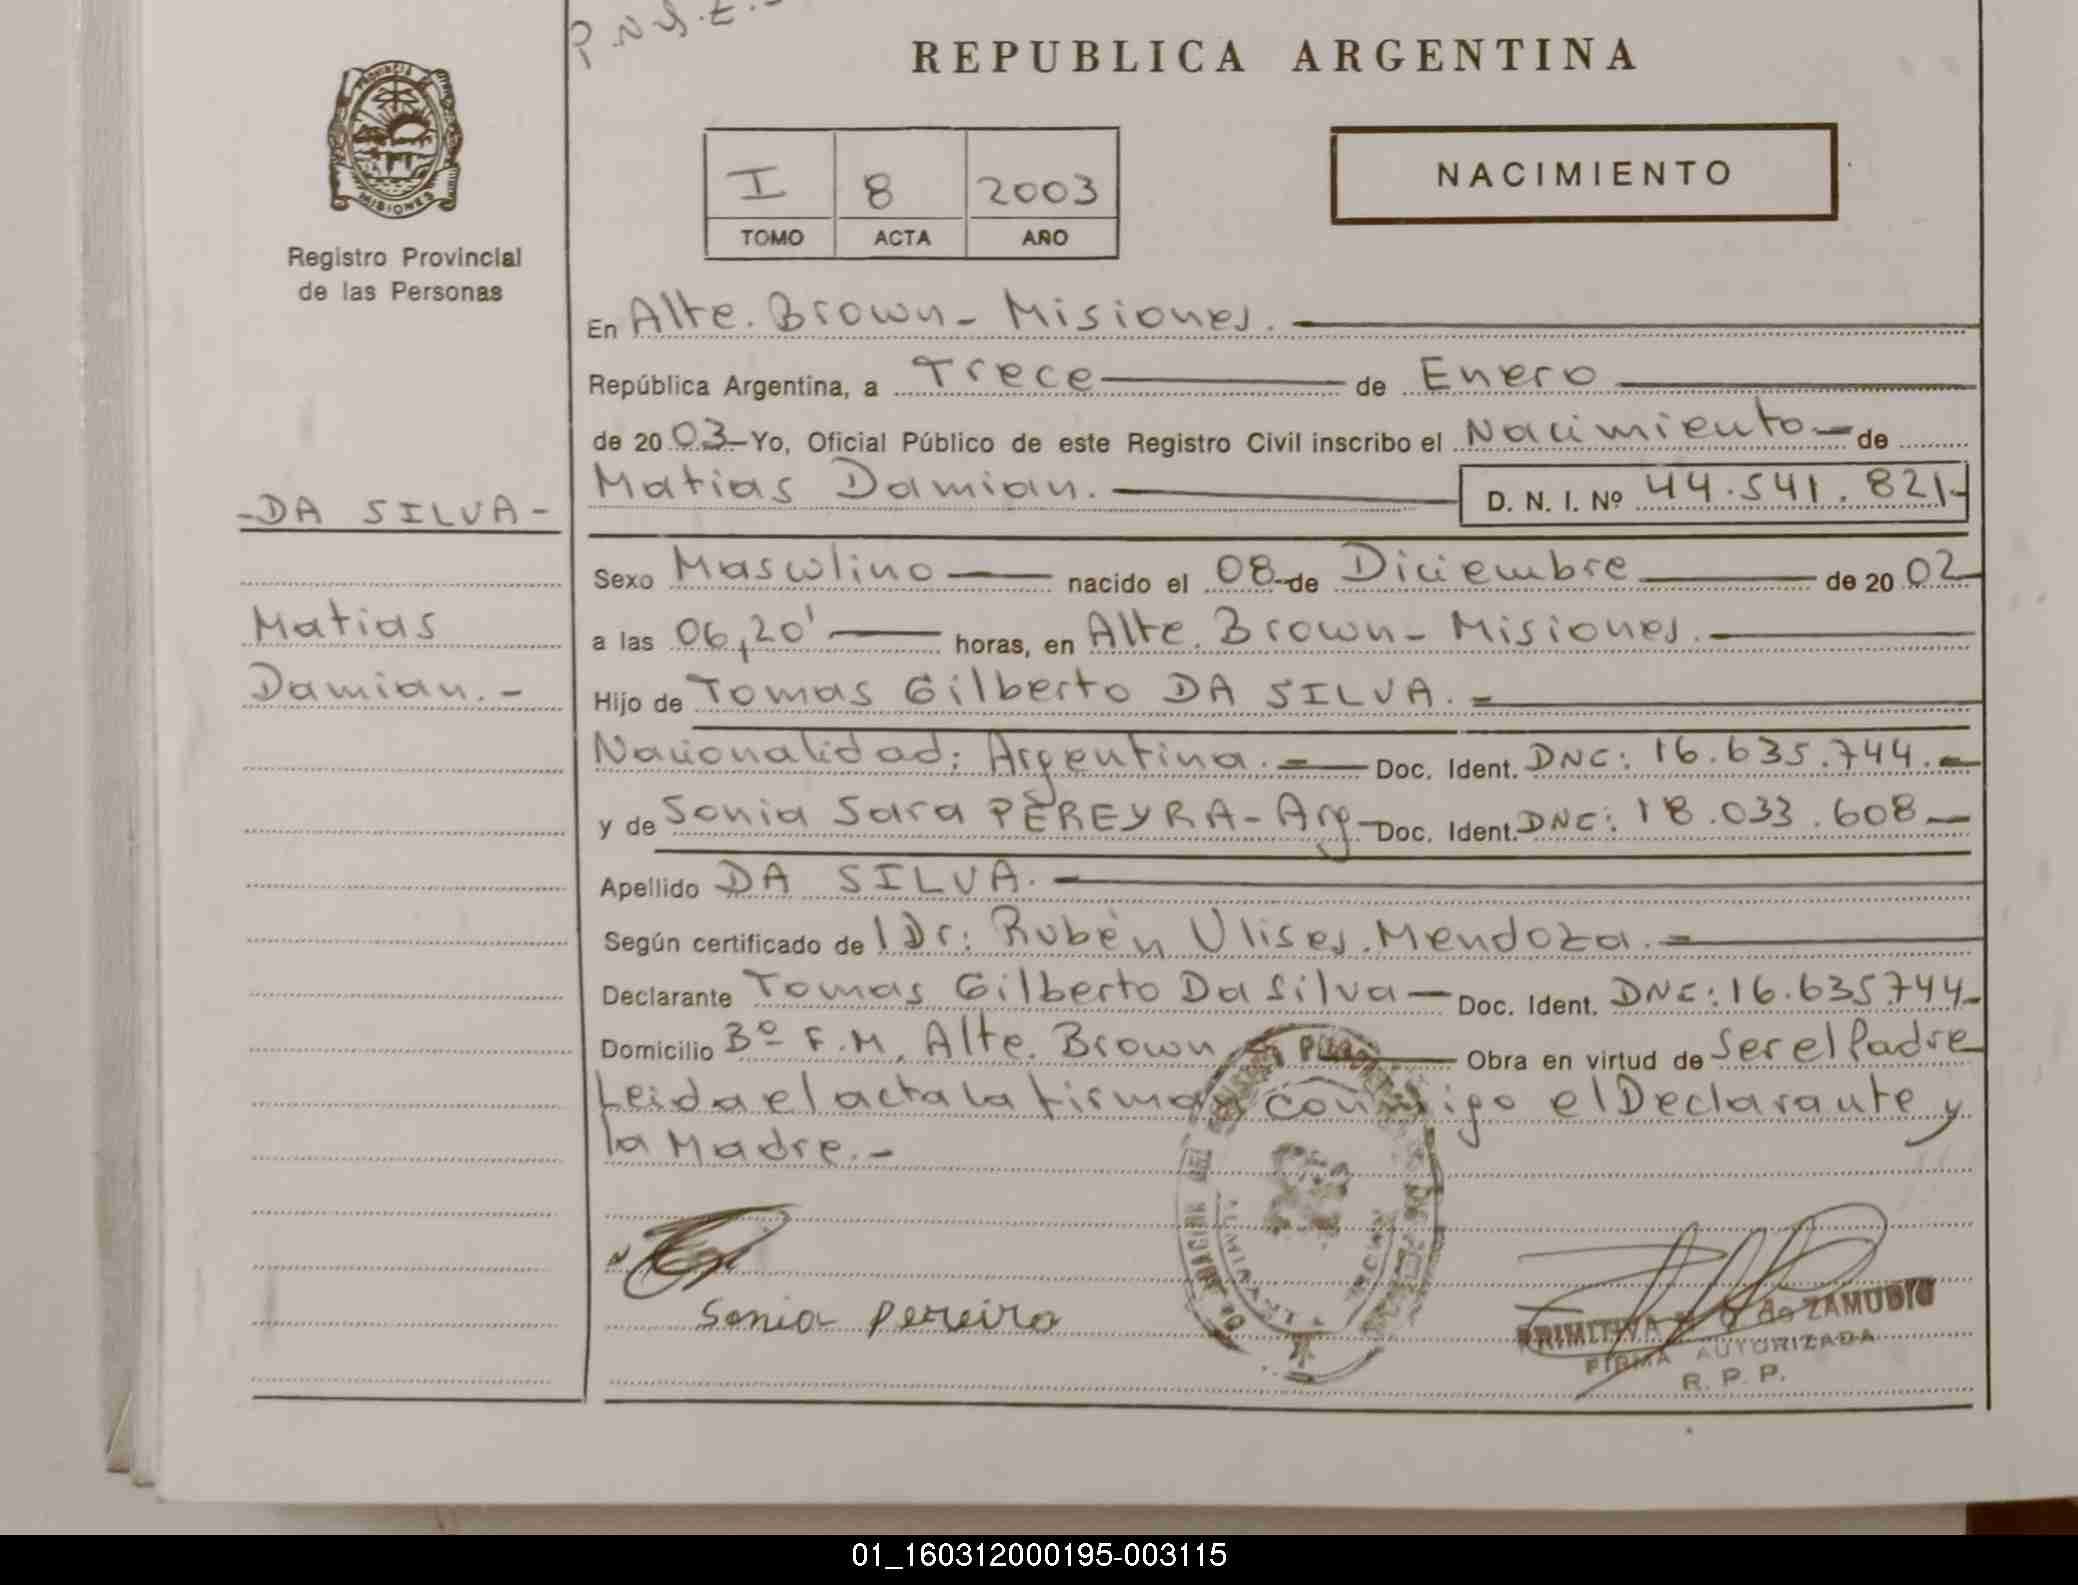 P.N.S.E.-
REPUBLICA ARGENTINA
PROVINCIA
MISIONES
Registro Provincial
de las Personas
I 8 2003
TOMO ACTA AÑO
NACIMIENTO
En Alte. Brown - Misiones.
República Argentina, a Trece de Enero
de 20 03 Yo, Oficial Público de este Registro Civil inscribo el Nacimiento de
Matias Damian. D. N. I. Nº 44.541.821-
- DA SILVA -
Matias
Damian. -
Sexo Masculino nacido el 08 de Diciembre de 20 02
a las 06,20' horas, en Alte. Brown - Misiones.
Hijo de Tomas Gilberto DA SILVA. -
Nacionalidad: Argentina. - Doc. Ident. DNE: 16.635.744. -
y de Sonia Sara PEREYRA - Arg - Doc. Ident. DNE: 18.033.608 -
Apellido DA SILVA. -
Según certificado de l Dr: Rubén Ulises Mendoza. -
Declarante Tomas Gilberto Da Silva - Doc. Ident. DNE: 16.635.744 -
Domicilio Bº F.M. Alte. Brown Obra en virtud de Ser el Padre
Leida el acta la firman conmigo el Declarante y
la Madre. -
Sonia Pereira
PRIMITIVA de ZAMUDIO
FIRMA AUTORIZADA
R. P. P.
01_160312000195-003115